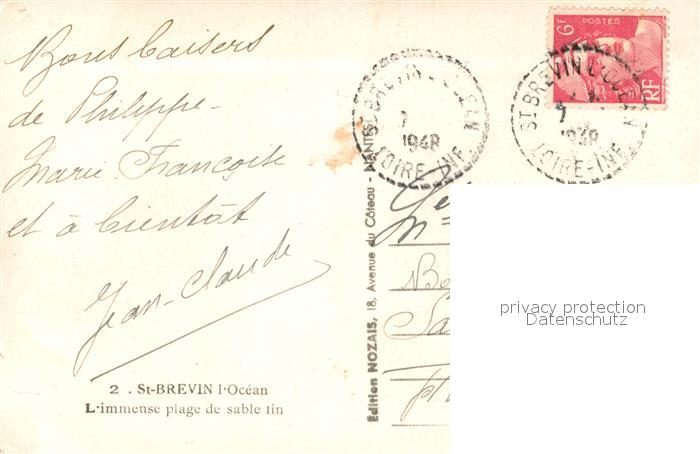 Bons baisers
de Philippe-
Marie Françoise
et à bientôt
Jean-Claude
2 . St-BREVIN l'Océan
L'immense plage de sable fin
Edition NOZAIS, 18, Avenue du Côteau - NANTES
ST BREVIN L'OCEAN
7
1948
LOIRE-INF.
ST BREVIN L'OCEAN
7
1948
LOIRE-INF.
6F
POSTES
RF
privacy protection
Datenschutz